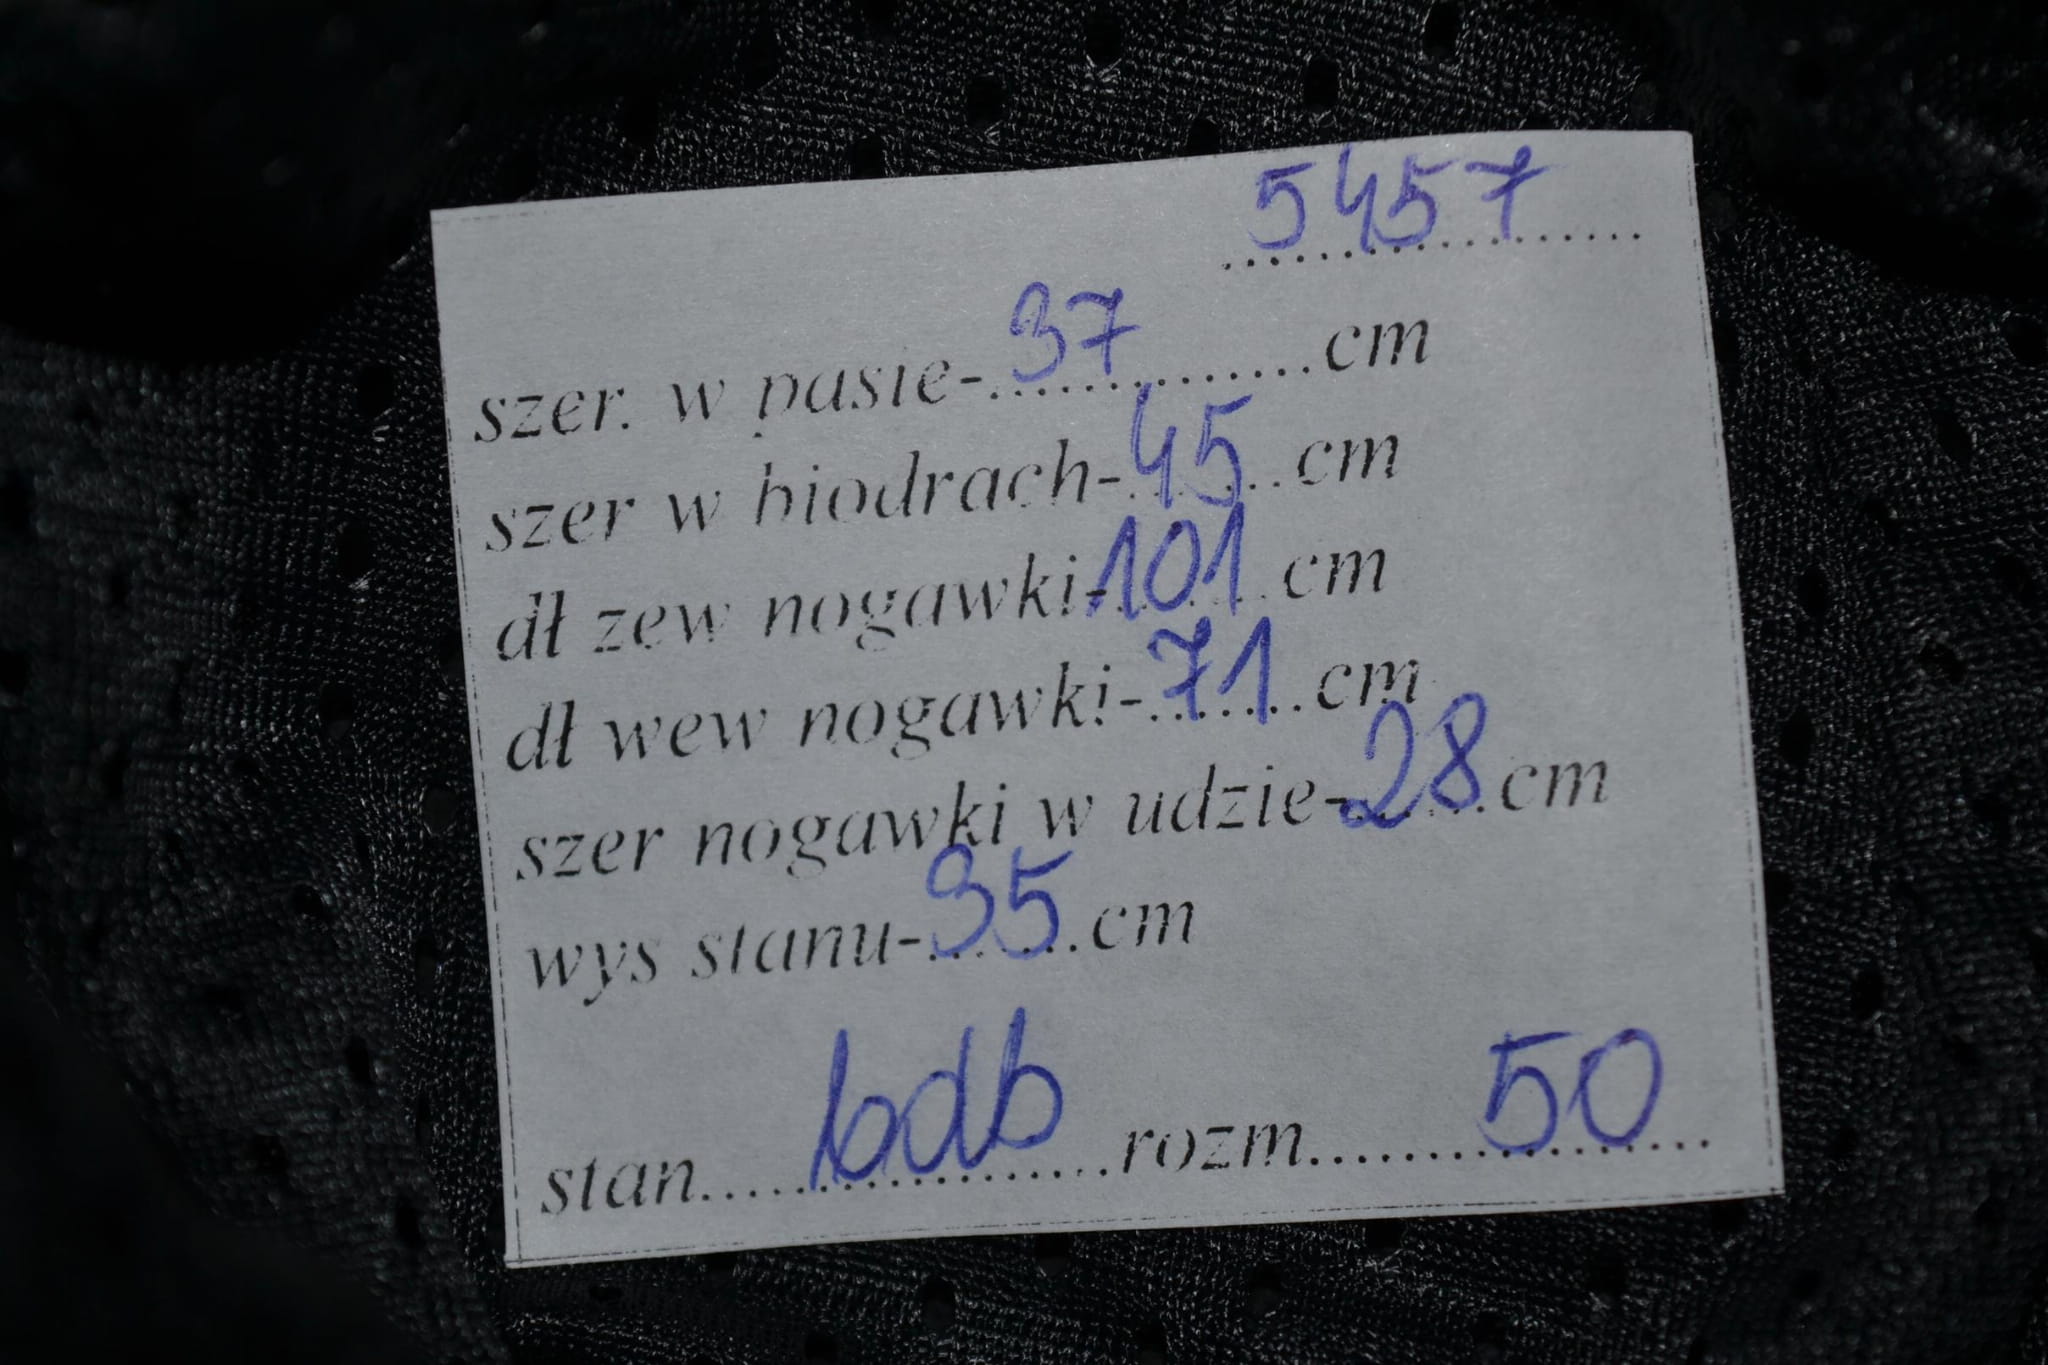 5457
szer. w pasie-37..............cm
szer w biodrach-45......cm
dł zew nogawki-101......cm
dł wew nogawki-71........cm
szer nogawki w udzie-28......cm
wys stanu-35.......cm
stan....bdb....rozm....50....